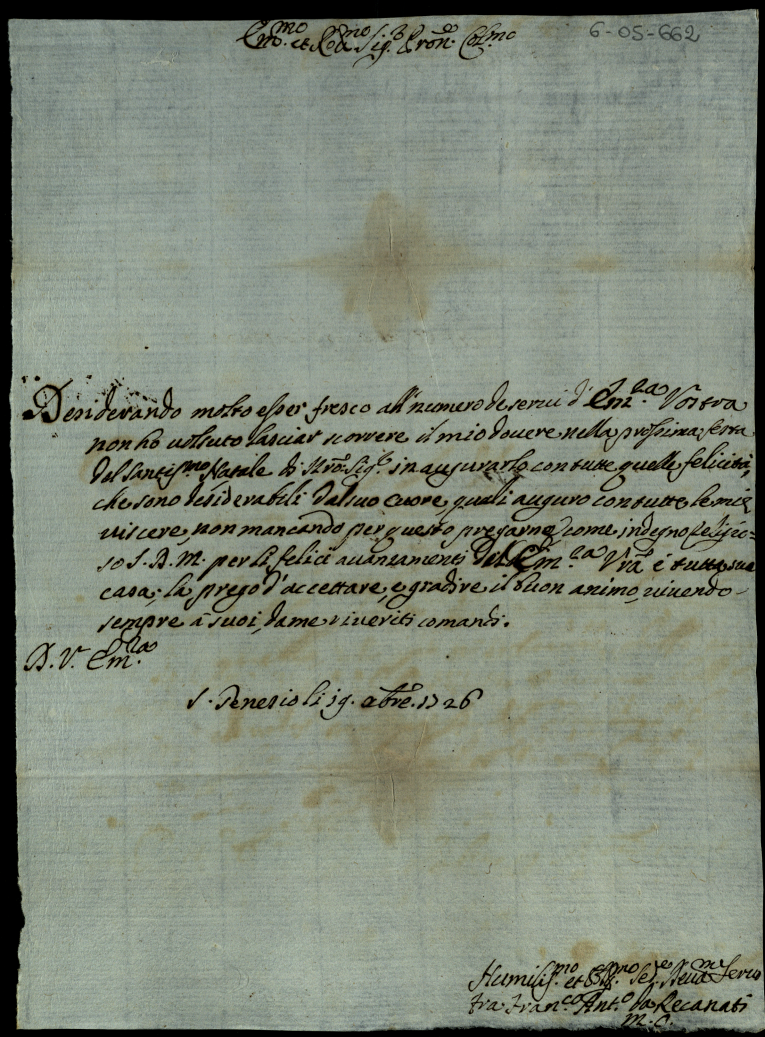 Em.mo et R.mo Sig.r Pron. Col.mo
6-05-662
Desiderando molto esser fresco all'numero de servi d' Em.za Vostra
non ho volsuto lasciar scorrere il mio dovere nella prossima festa
del Santiss.mo Natale di Nro. Sig.e in augurarlo con tutte quelle felicità,
che sono desiderabili dal suo cuore, quali auguro con tutte le mie
viscere, non mancando per questo pregarne come indegno Religio-
so S. D. M. per li felici avansamenti dell' Em.za Vra è tutta sua
casa; la prego d'accettare, e gradire il buon animo, vivendo
sempre à suoi, da me riveriti comandi.
D. V. Em.za
S. Genesio li 19. Xbre. 1726
Humiliss.mo et Serv.
Fra Fran.co Ant.o da Recanati
M. C.